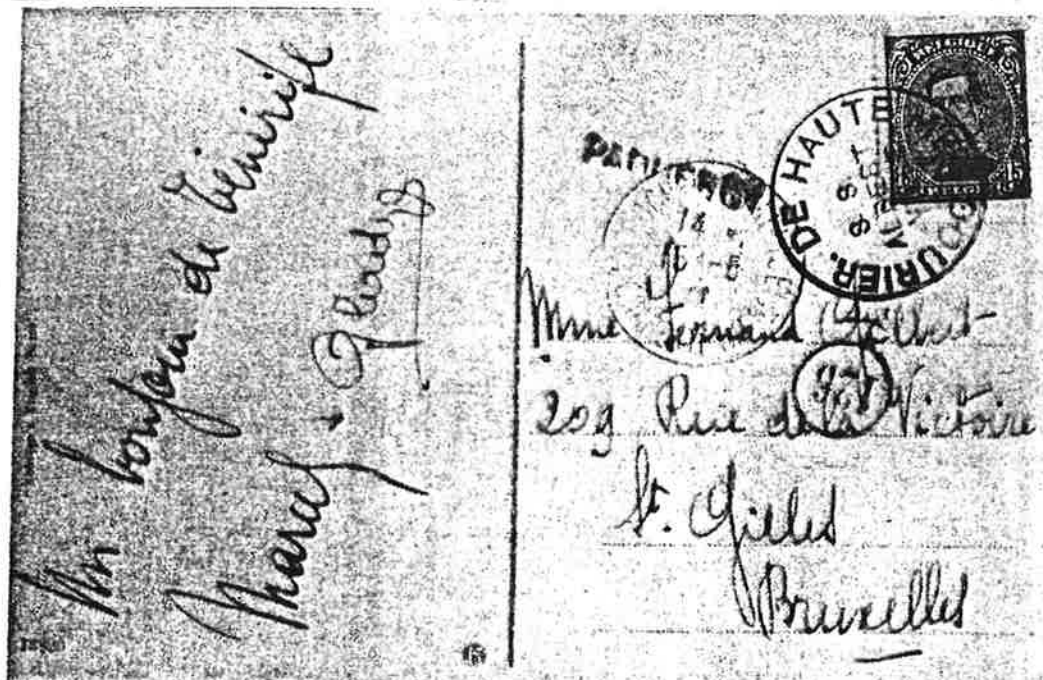 Un bonjour de Ténérife
Marcel + Gladys
BELGIQUE
15
COURRIER. DE HAUTE MER
PAQUEBOT
14
Mme Fernand Gilbert
209 Rue de la Victoire
St. Gilles
Bruxelles